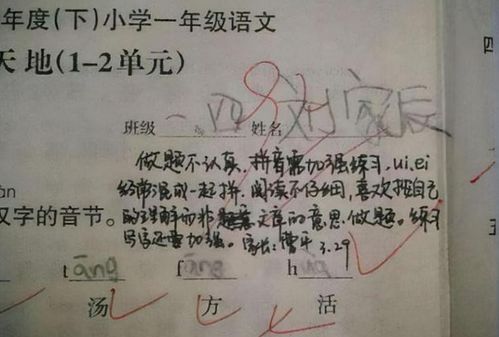 年度(下)小学一年级语文
天地(1-2单元)
班级 一 四 姓名 刘家辰
做题不认真,拼音需加强练习,ui、ei
经常混成一起拼,阅读不仔细,喜欢按自己
的理解而非文章的意思做题。练习
写字还要加强。家长:曹平 3.29
汉字的音节。
tāng fāng h
汤 方 活
四